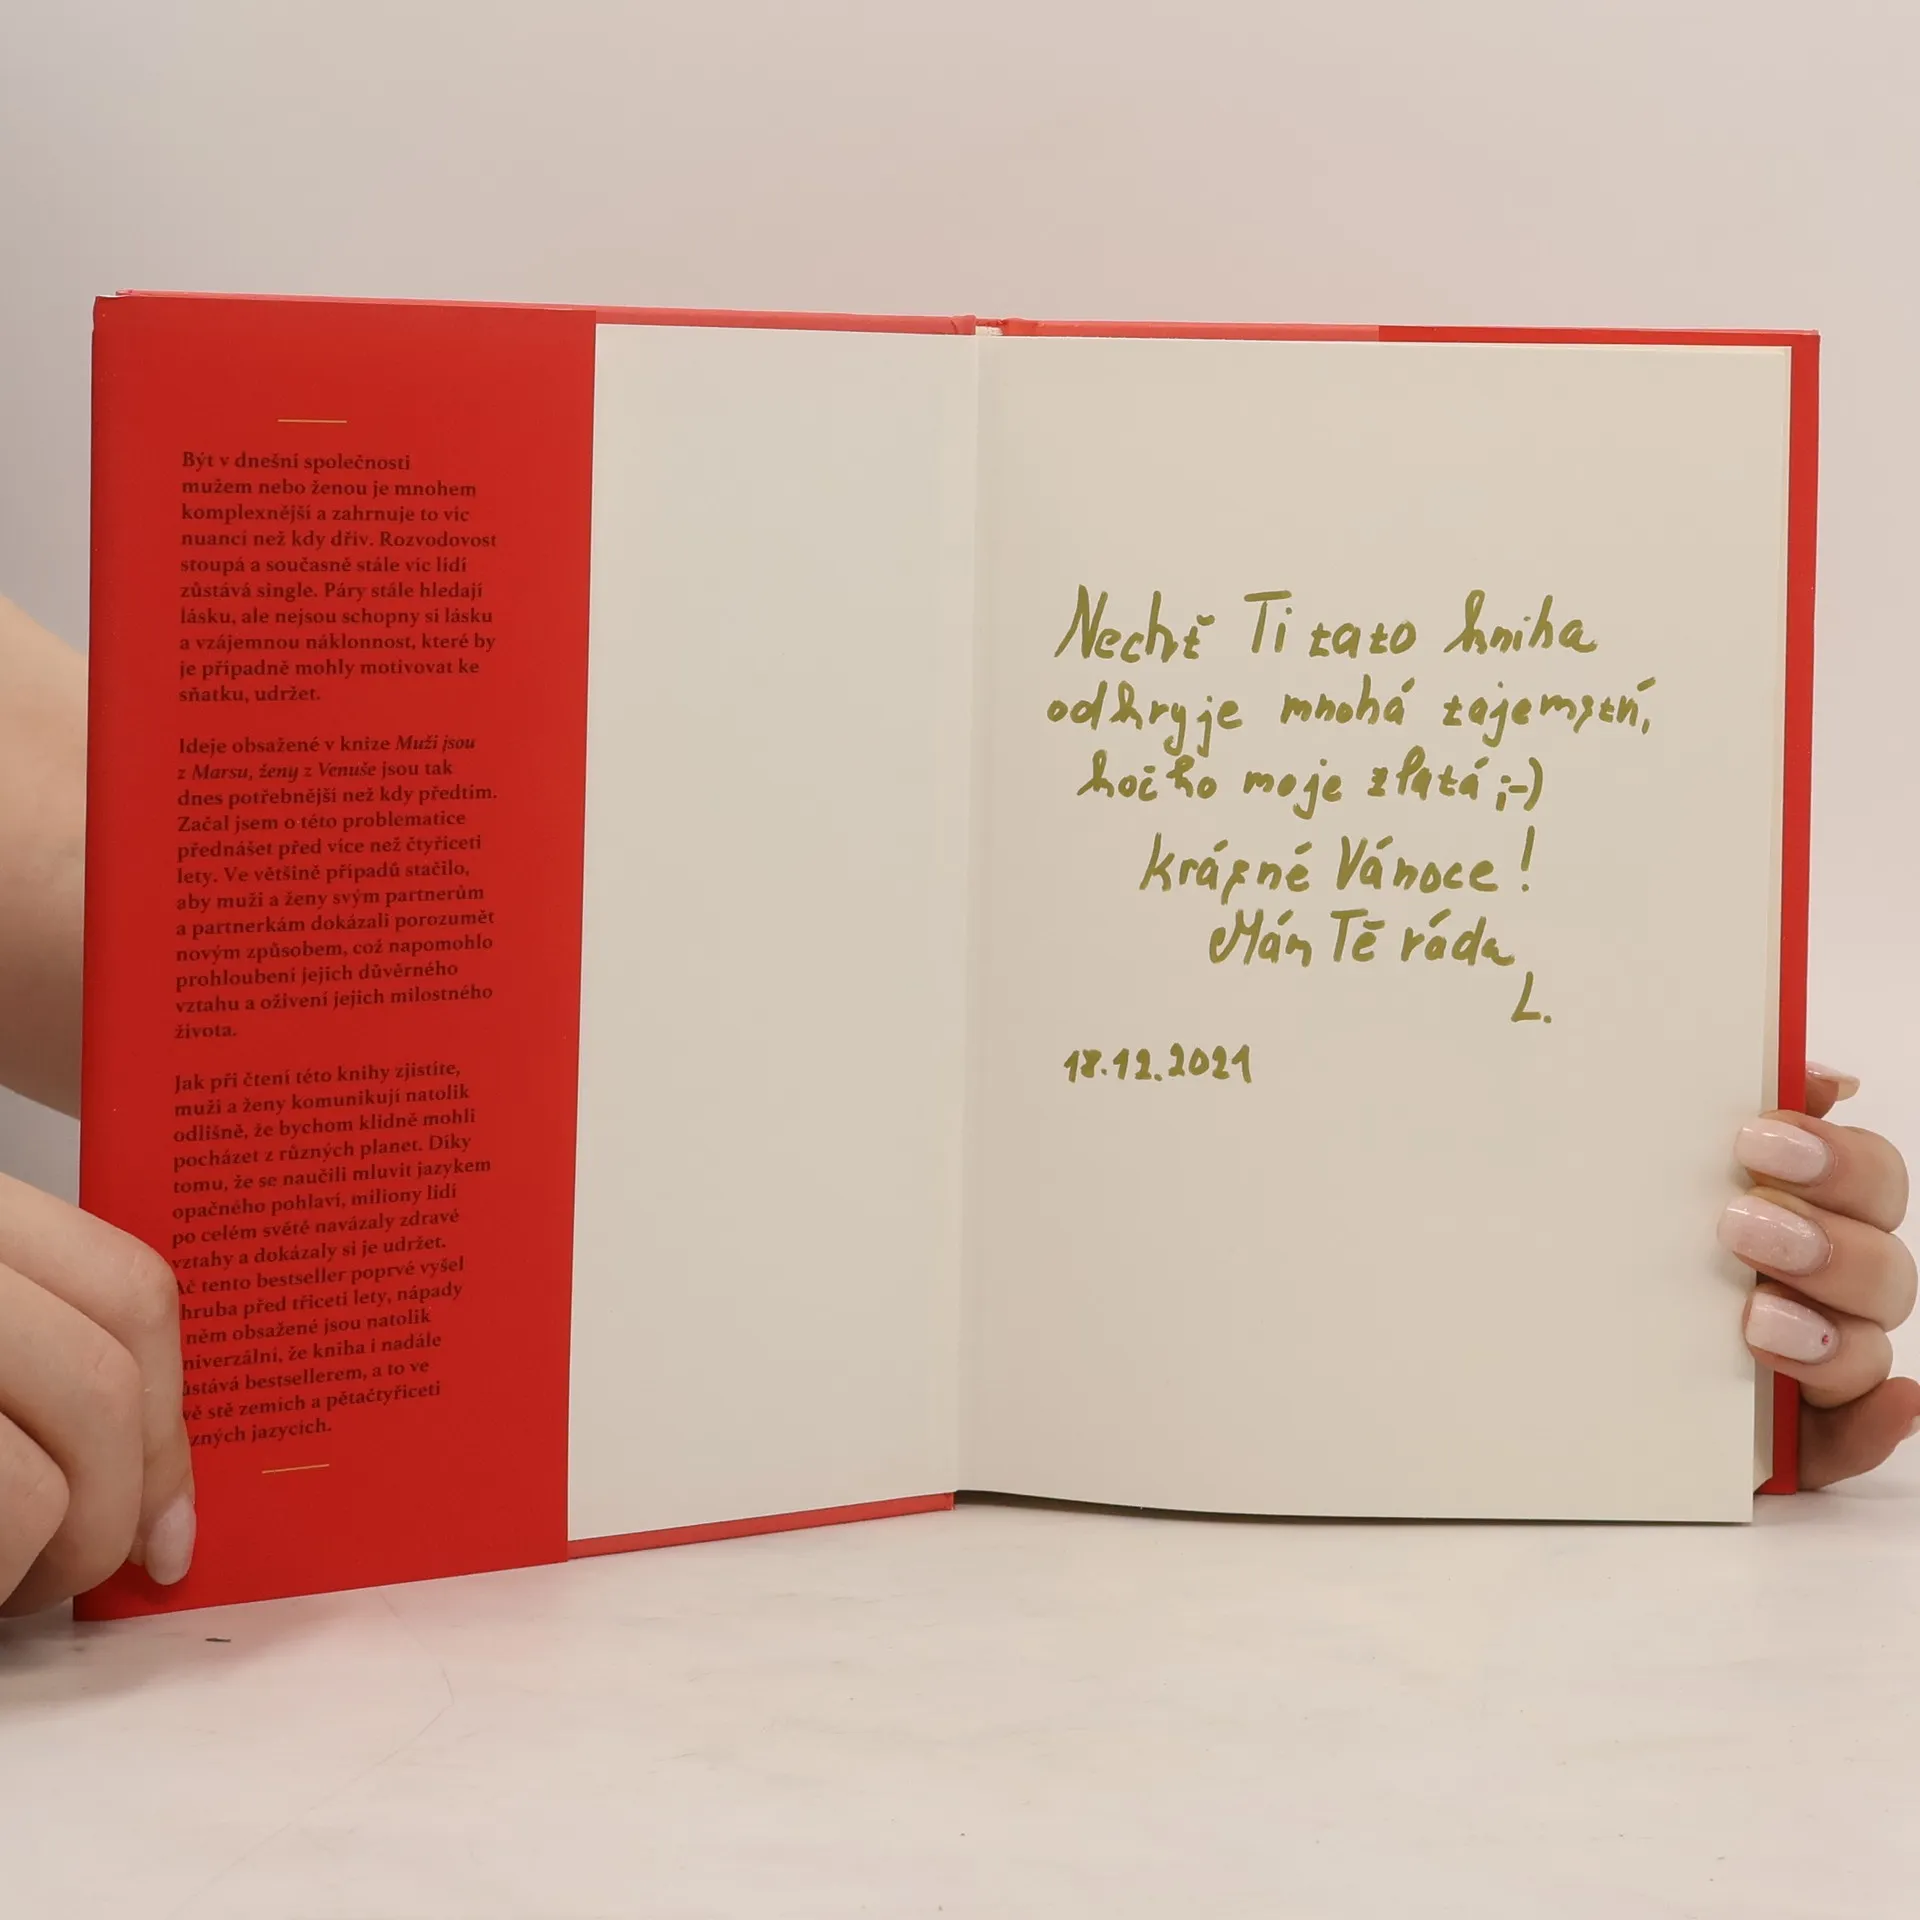 Být v dnešní společnosti
mužem nebo ženou je mnohem
komplexnější a zahrnuje to víc
nuancí než kdy dřív. Rozvodovost
stoupá a současně stále víc lidí
zůstává single. Páry stále hledají
lásku, ale nejsou schopny si lásku
a vzájemnou náklonnost, které by
je případně mohly motivovat ke
sňatku, udržet.
Ideje obsažené v knize Muži jsou
z Marsu, ženy z Venuše jsou tak
dnes potřebnější než kdy předtím.
Začal jsem o této problematice
přednášet před více než čtyřiceti
lety. Ve většině případů stačilo,
aby muži a ženy svým partnerům
a partnerkám dokázali porozumět
novým způsobem, což napomohlo
prohloubení jejich důvěrného
vztahu a oživení jejich milostného
života.
Jak při čtení této knihy zjistíte,
muži a ženy komunikují natolik
odlišně, že bychom klidně mohli
pocházet z různých planet. Díky
tomu, že se naučili mluvit jazykem
opačného pohlaví, miliony lidí
po celém světě navázaly zdravé
vztahy a dokázaly si je udržet.
Ač tento bestseller poprvé vyšel
hruba před třiceti lety, nápady
něm obsažené jsou natolik
niverzální, že kniha i nadále
ůstává bestsellerem, a to ve
vě stě zemích a pětačtyřiceti
zných jazycích.
Nechť Ti tato kniha
odkryje mnohá tajemství,
kočko moje zlatá ;-)
Krásné Vánoce!
Mám Tě ráda
L.
18.12.2021